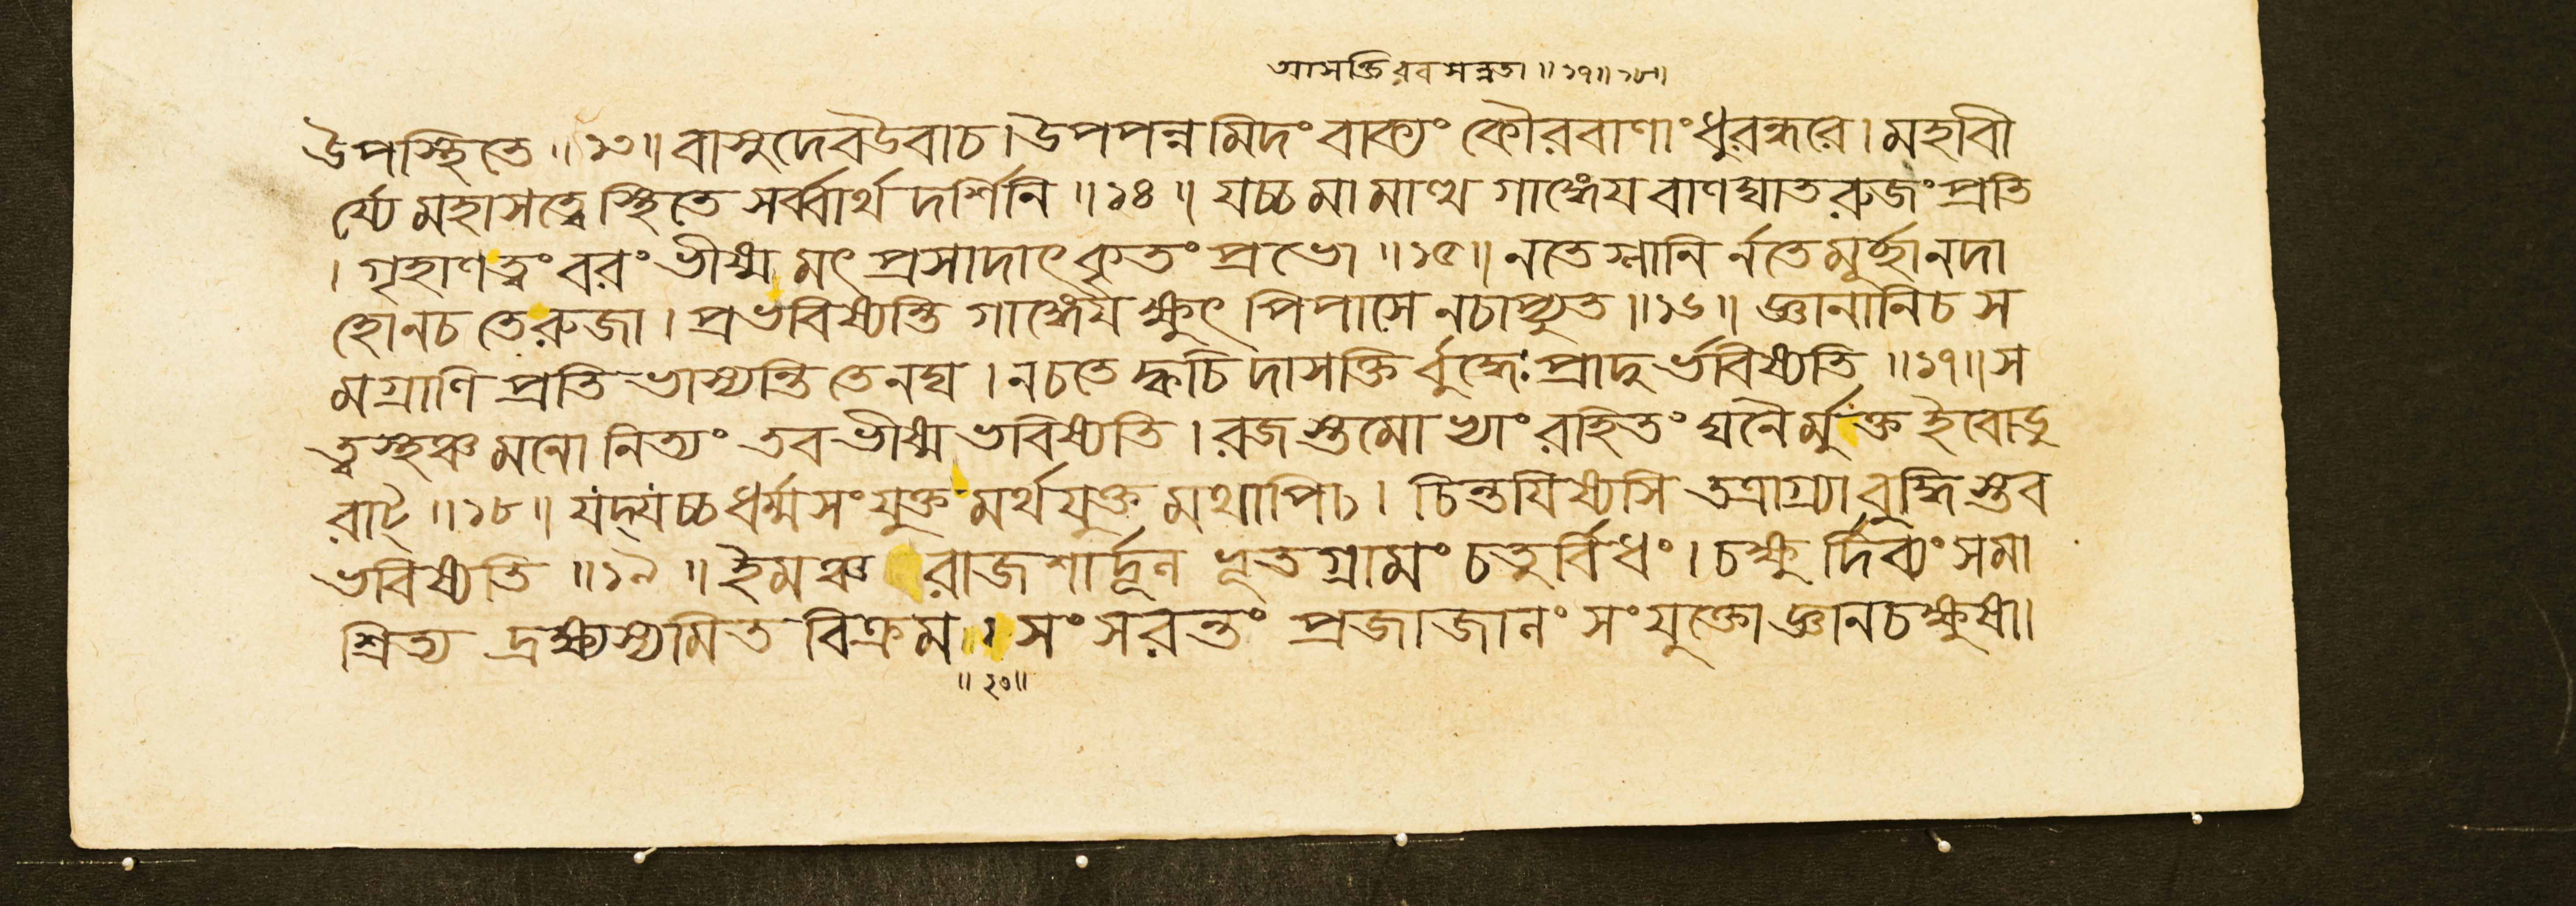 আসক্তিরবসন্নতা ॥ ১৭ ॥ ১৮ ॥
উপস্থিতে ॥ ১৩ ॥ বাসুদেব উবাচ । উপপন্নমিদং বাক্যং কৌরবাণাং ধুরন্ধরে । মহাবী
র্য্যে মহাসত্ত্বে স্থিতে সর্ব্বার্থদর্শিনি ॥ ১৪ ॥ যচ্চ মামাত্থ গাঙ্গেয় বাণঘাতরুজং প্রতি
। গৃহাণ ত্বং বরং ভীষ্ম মৎপ্রসাদাৎ কৃতং প্রভো ॥ ১৫ ॥ ন তে গ্লানির্ন তে মূর্চ্ছা ন দা
হো ন চ তে রুজা । প্রভবিষ্যন্তি গাঙ্গেয় ক্ষুৎপিপাসে ন চাপ্যুত ॥ ১৬ ॥ জ্ঞানানি চ স
মগ্রাণি প্রতিভাস্যন্তি তেনঘ । ন চ তে ক্বচিদাসক্তির্বুদ্ধেঃ প্রাদুর্ভবিষ্যতি ॥ ১৭ ॥ স
ত্ত্বস্থঞ্চ মনো নিত্যং তব ভীষ্ম ভবিষ্যতি । রজস্তমোভ্যাং রহিতং ঘনৈর্মুক্ত ইবোডু
রাট্ ॥ ১৮ ॥ যদ্যচ্চ ধর্ম্মসংযুক্তমর্থযুক্তমথাপি চ । চিন্তয়িষ্যসি তত্রাগ্র্যা বুদ্ধিস্তব
ভবিষ্যতি ॥ ১৯ ॥ ইমঞ্চ রাজশার্দূল ভূতগ্রামং চতুর্বিধং । চক্ষুর্দিব্যং সমা
শ্রিত্য দ্রক্ষ্যস্যমিতবিক্রম । সংসরন্তং প্রজাজালং সংযুক্তো জ্ঞানচক্ষুষা ।
॥ ২০ ॥